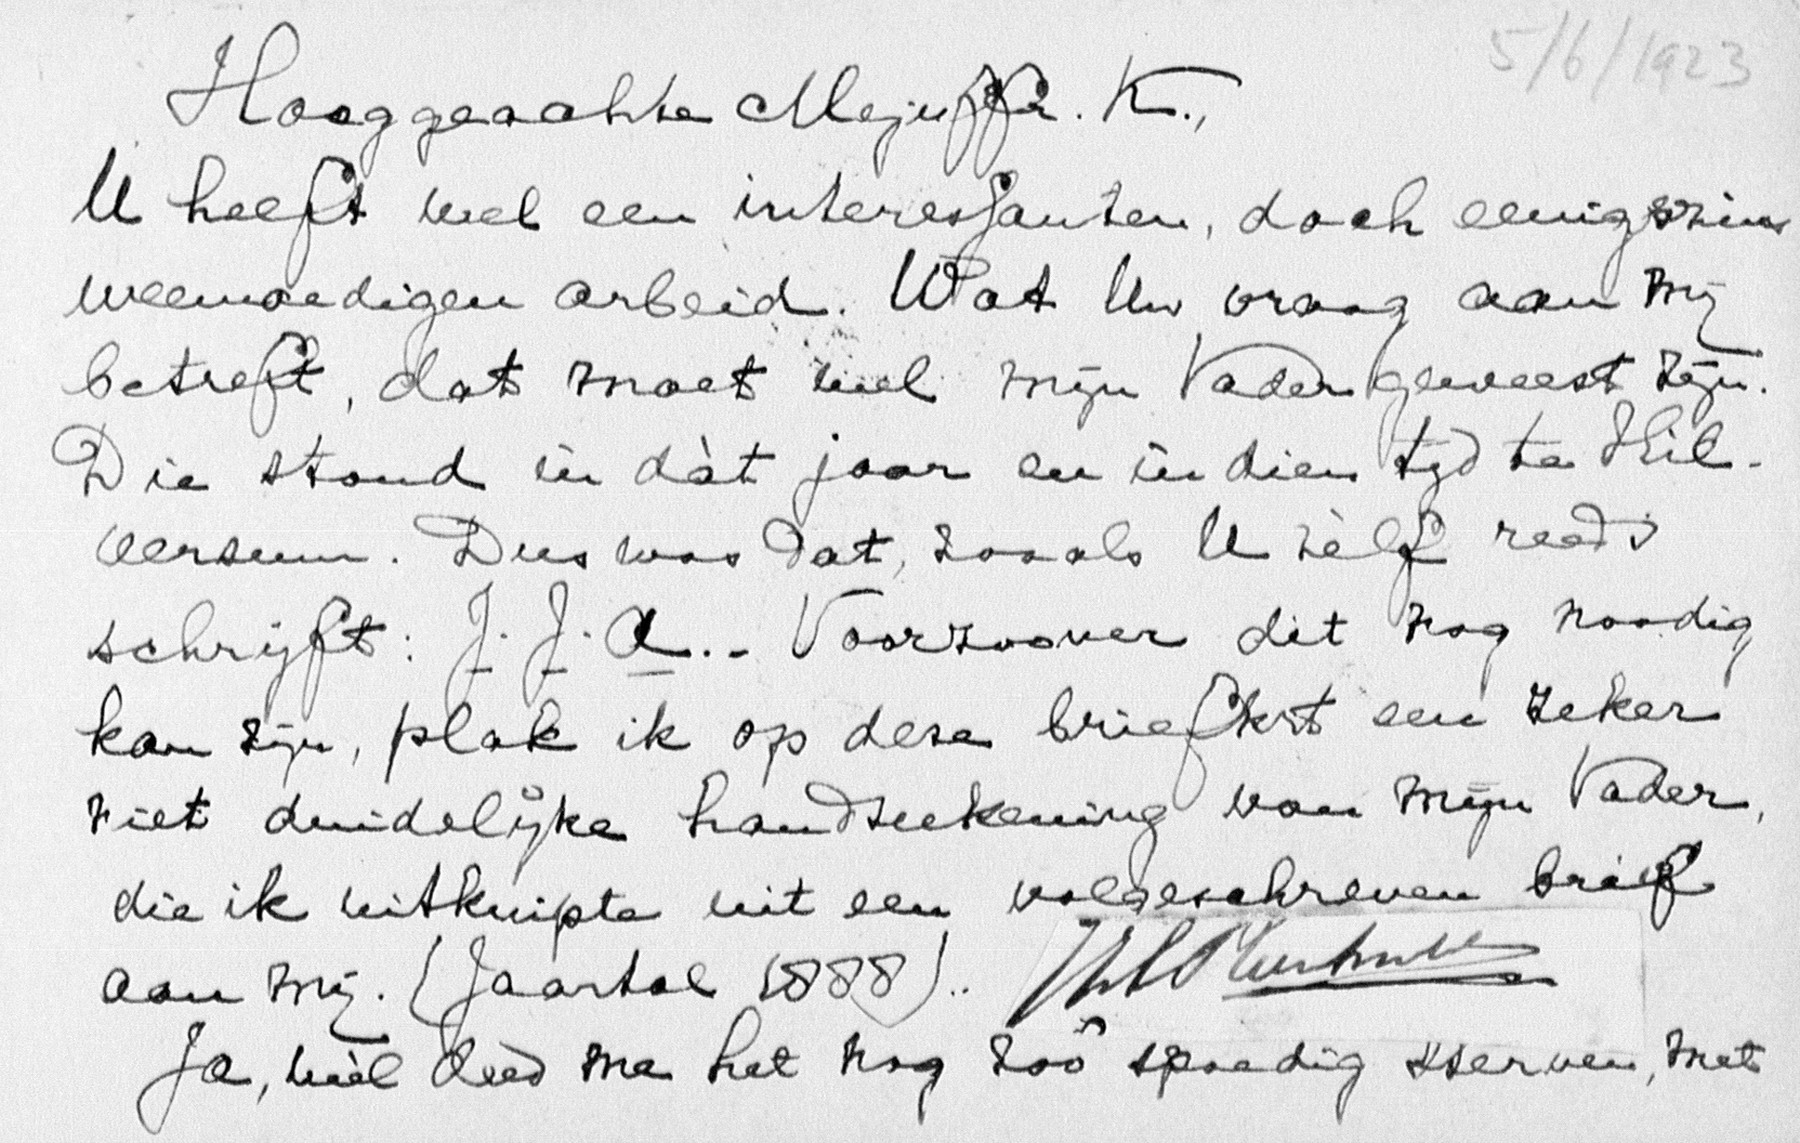 5/6/1923
Hooggeachte Mejuffr. K.,
U heeft wel een interessanten, doch eenigszins
weemoedigen arbeid. Wat Uw vraag aan mij
betreft, dat moet wel mijn Vader geweest zijn.
Die stond in dàt jaar en in dien tijd te Hil-
versum. Dus was dat, zooals U zèlf reeds
schrijft: J. J. A.. - Voorzoover dit nog noodig
kan zijn, plak ik op deze briefkrt een zeker
niet duidelijke handteekening van mijn Vader,
die ik uitknipte uit een volgeschreven brief
aan mij. (Jaartal 1888)..
Ja, wèl deed me het nog zoo spoedig sterven, met